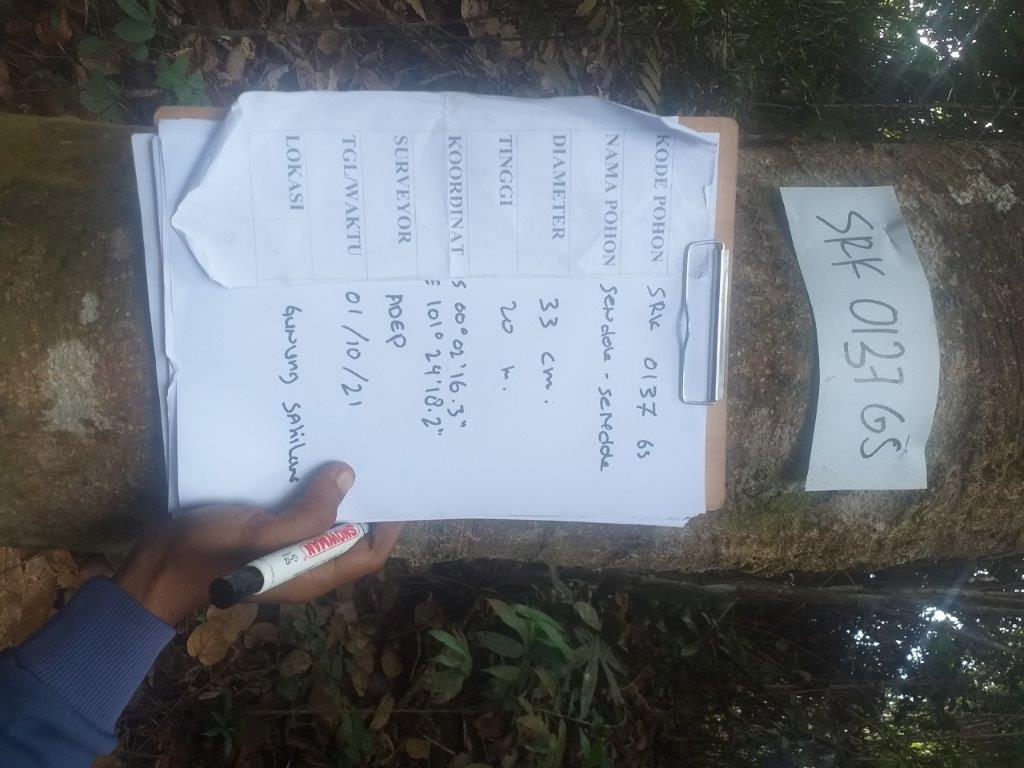 KODE POHON SRK 0137 GS
NAMA POHON Sendok - sendok
DIAMETER 33 cm.
TINGGI 20 m.
KOORDINAT S 00° 02'16.3"
E 101° 24'18.2"
SURVEYOR ADEP
TGL/WAKTU 01/10/21
LOKASI Gunung Sahilan
SRK 0137 GS
SNOWMAN
G-12